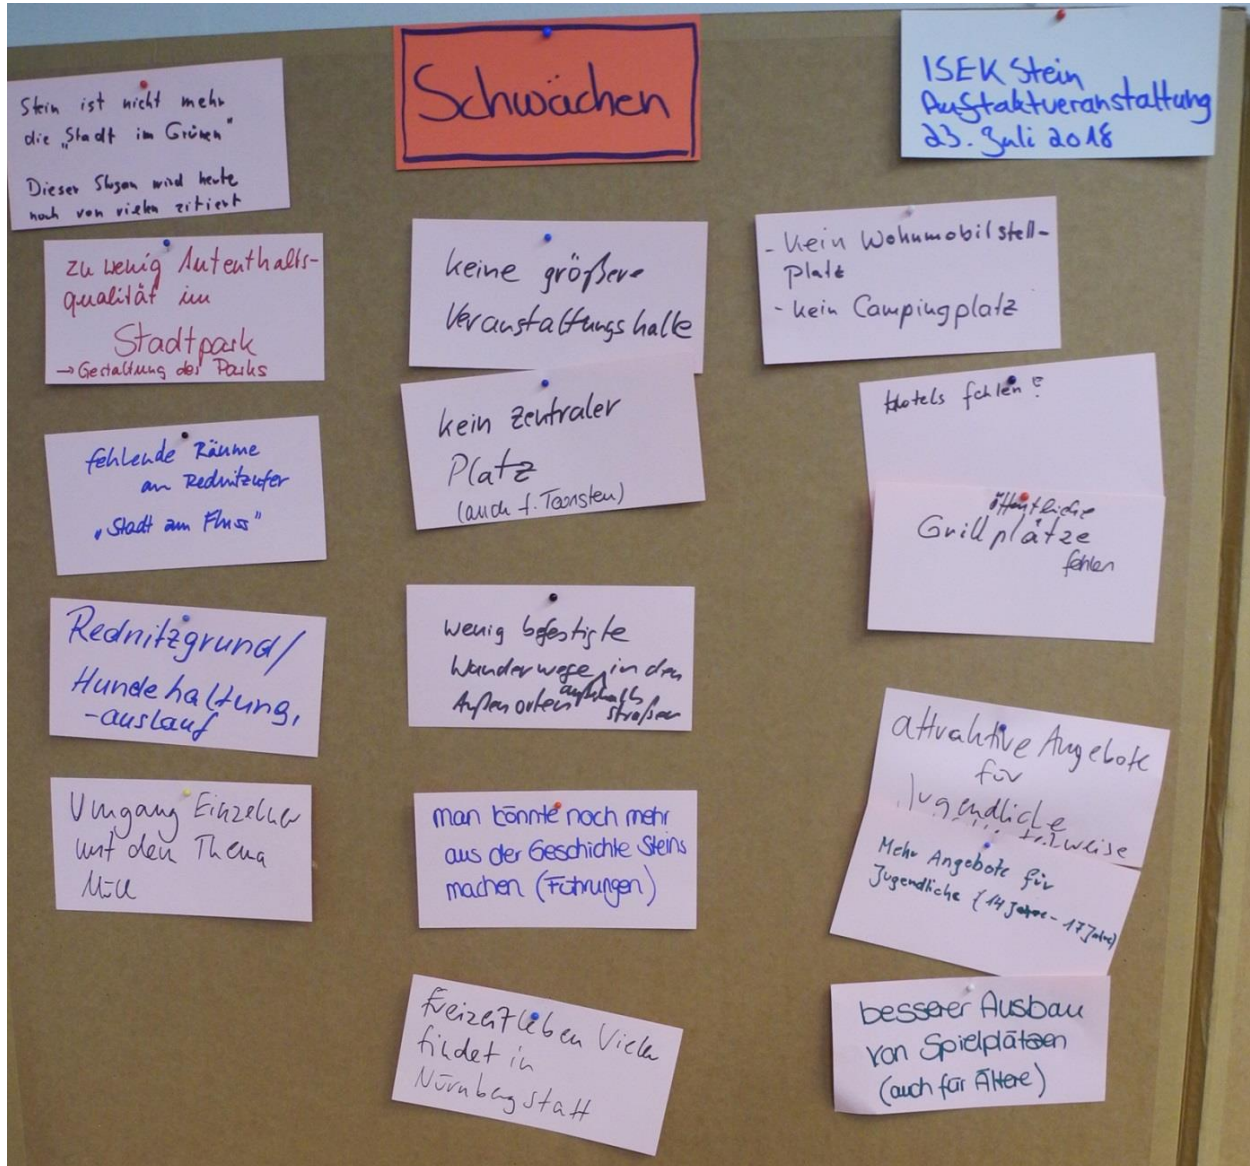 Schwächen
ISEK Stein
Auftaktveranstaltung
23. Juli 2018
Stein ist nicht mehr
die „Stadt im Grünen"
Dieser Slogan wird heute
noch von vielen zitiert
zu wenig Aufenthalts-
qualität im
Stadtpark
→ Gestaltung des Parks
fehlende Räume
am Rednitzufer
„Stadt am Fluss"
Rednitzgrund/
Hundehaltung,
-auslauf
Umgang Einzelner
mit dem Thema
Müll
keine größere
Veranstaltungshalle
kein zentraler
Platz
(auch f. Touristen)
wenig befestigte
Wanderwege in den
Außenorten außerhalb
straßen
man könnte noch mehr
aus der Geschichte Steins
machen (Führungen)
Freizeitleben Vieler
findet in
Nürnberg statt
- kein Wohnmobilstell-
platz
- kein Campingplatz
Hotels fehlen?
öffentliche
Grillplätze
fehlen
attraktive Angebote
für
Jugendliche
teilweise
Mehr Angebote für
Jugendliche (14 Jahre - 17 Jahre)
besserer Ausbau
von Spielplätzen
(auch für Ältere)